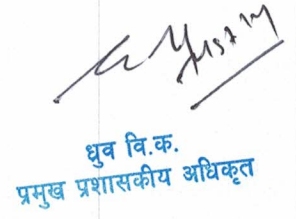 ध्रुव वि.क.
प्रमुख प्रशासकीय अधिकृत